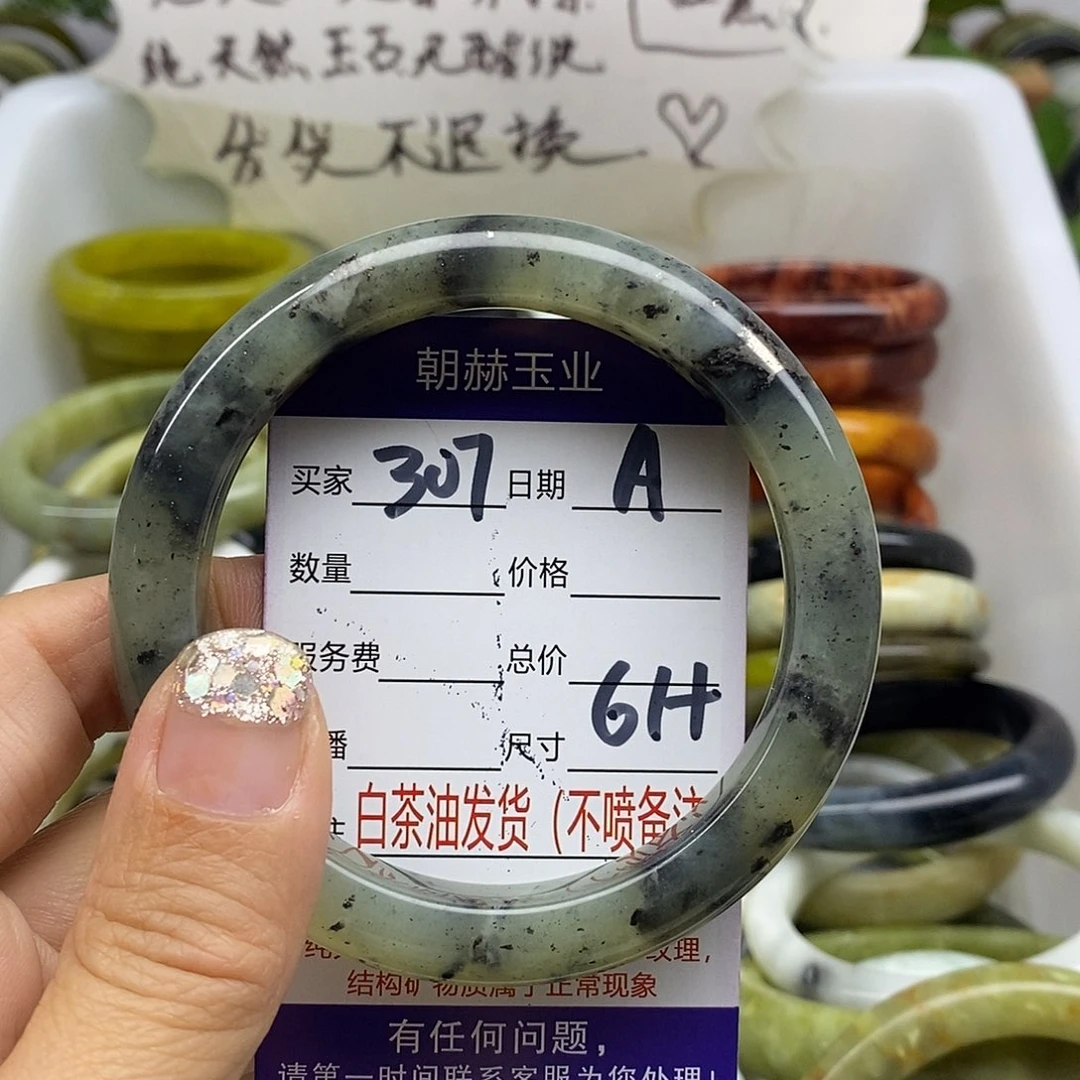 纯天然玉石无酸洗
售出不退换
朝赫玉业
买家 307 日期 A
数量 价格
服务费 总价
播 尺寸 6H
白茶油发货（不喷备注
纹理，
结构矿物质属于正常现象
有任何问题，
请第一时间联系客服为您处理！